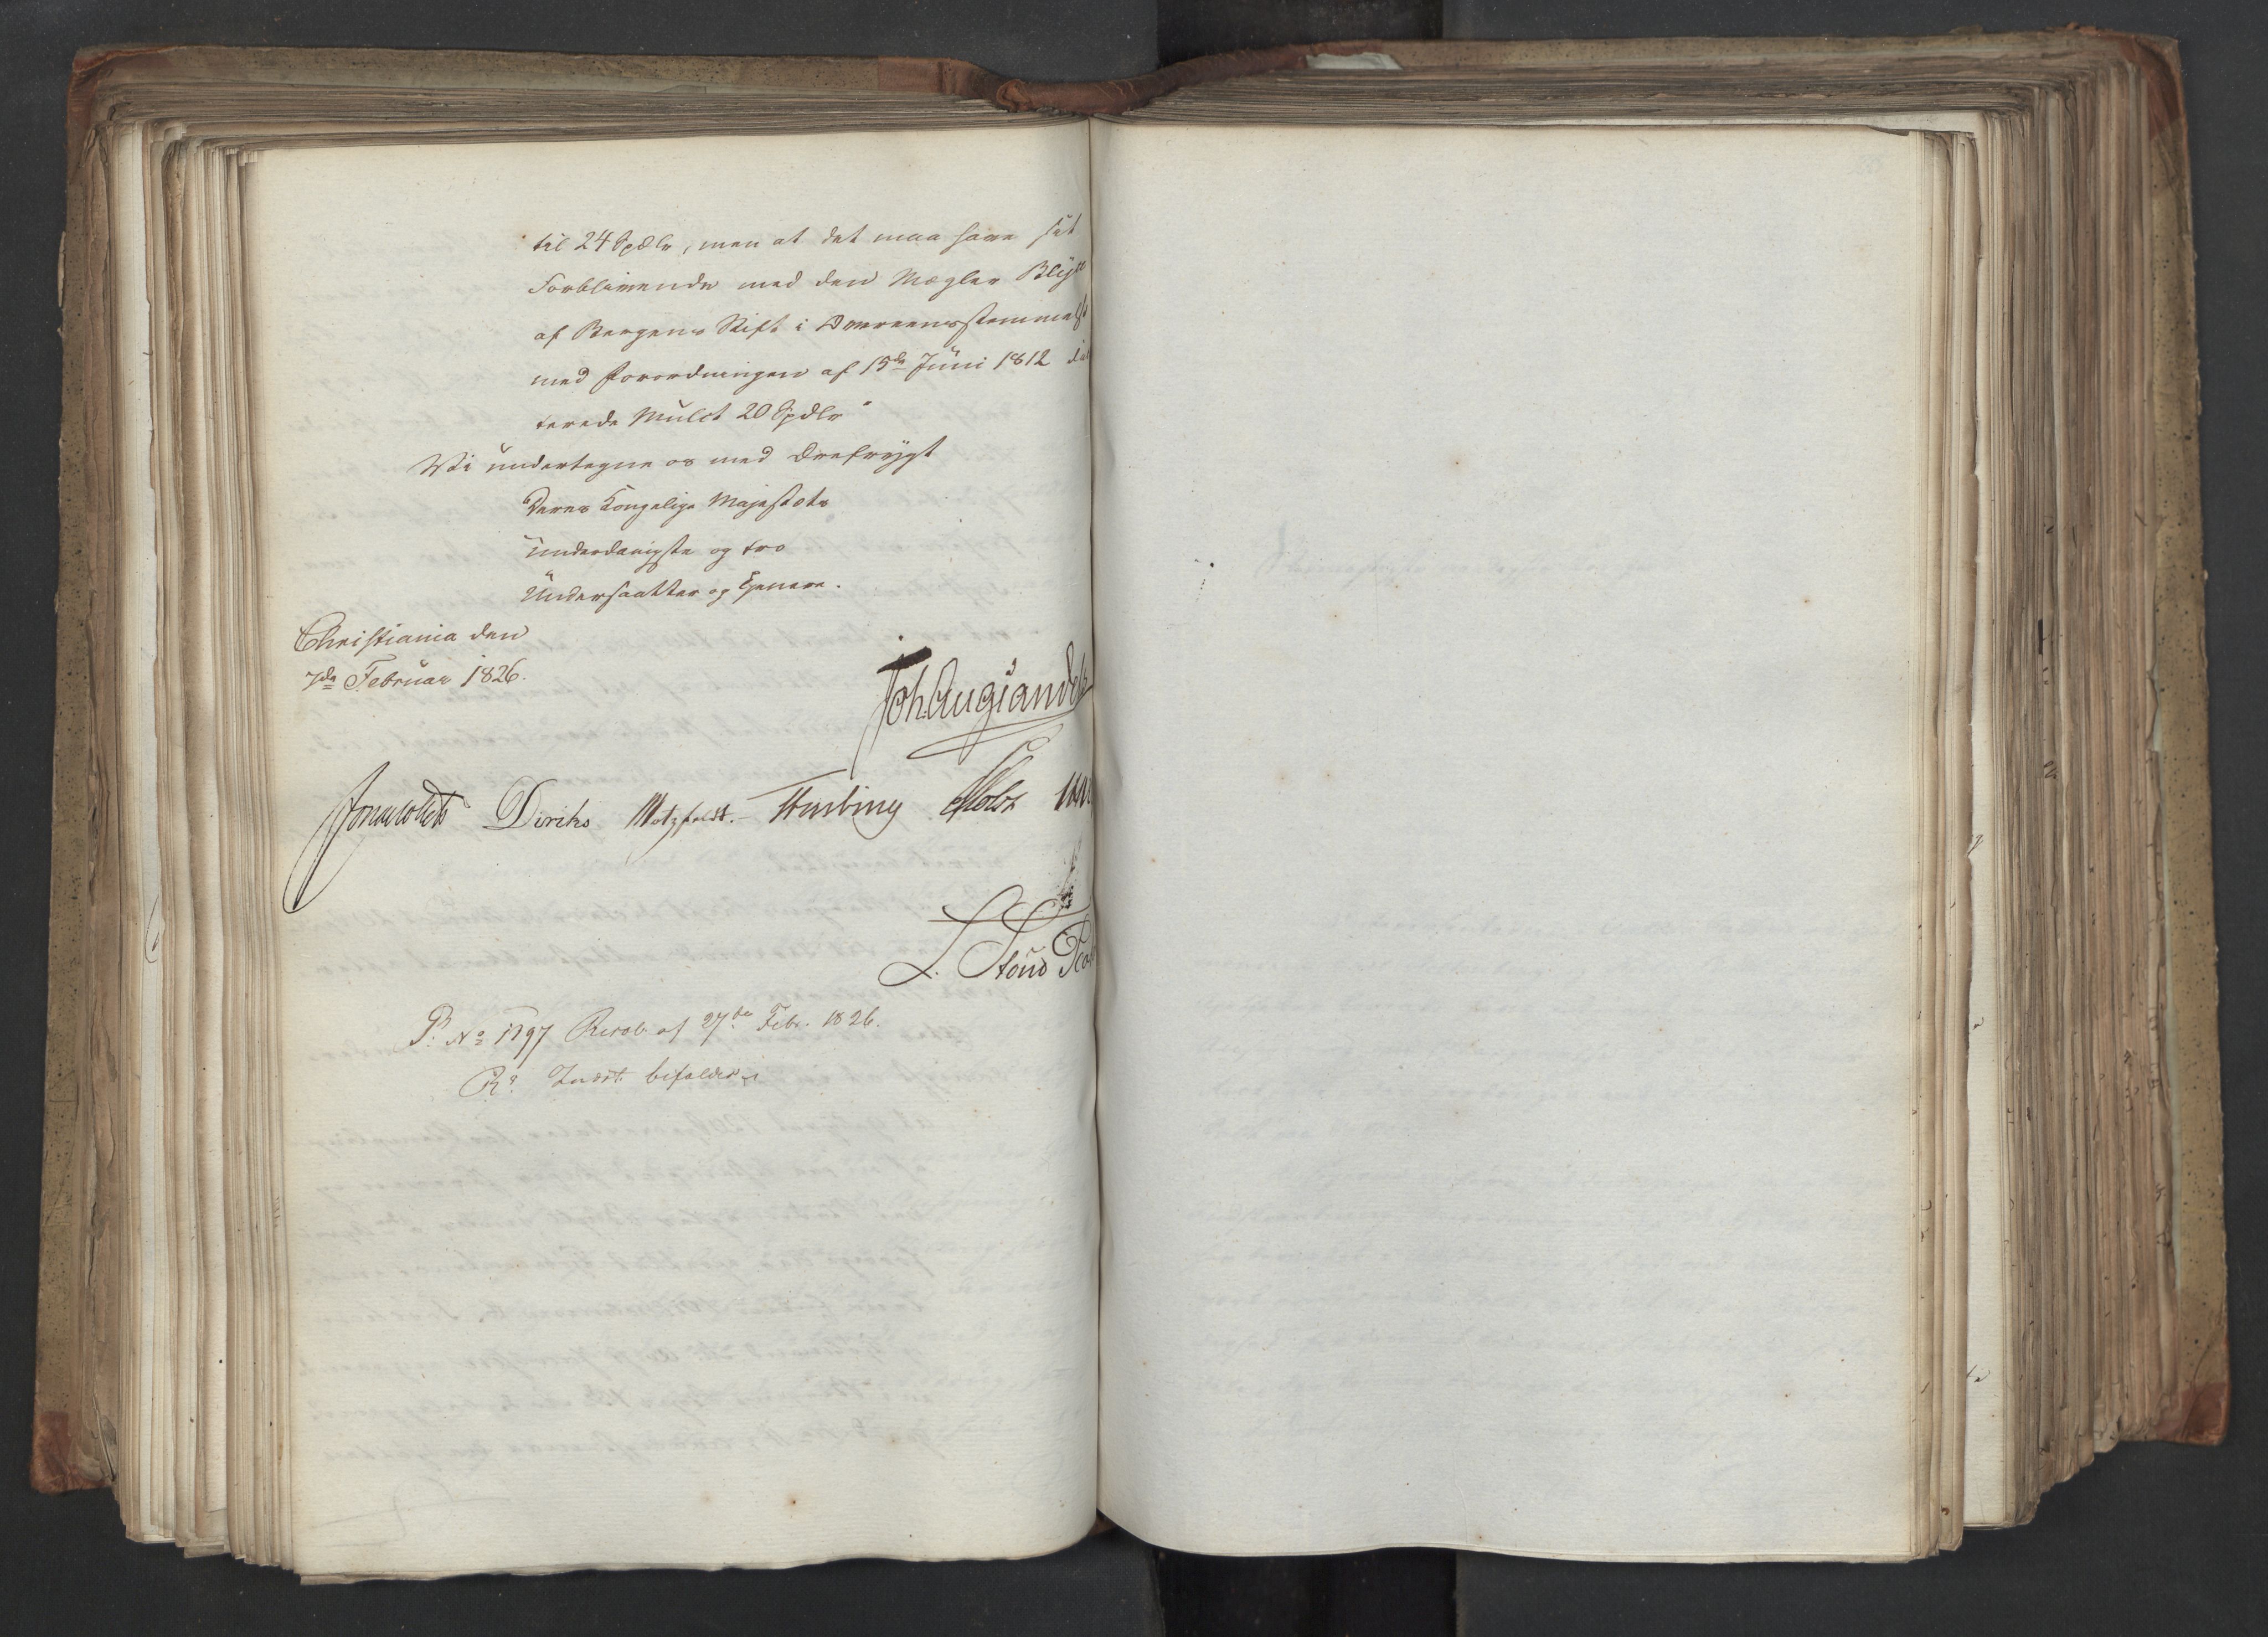 til 24 Spdlr, men at det maa have sit
Forblivende med den Mægler Blyt
af Bergens Stift i Overeensstemmelse
med Forordningen af 15de Juni 1812 dic
terede Mulct 20 Spdlr"
Vi undertegne os med Ærefrygt
Deres Kongelige Majestæts
underdanigste og tro
Undersaatter og Tjenere.
Christiania den
7de Februar 1826.
Joh: Aug: Sandels
Jonas Collett Diriks Motzfeldt. Fasting Holst
L. Stoud Pla
P: No 1797 Resol: af 27de Febr. 1826.
Rs Indst. bifaldes